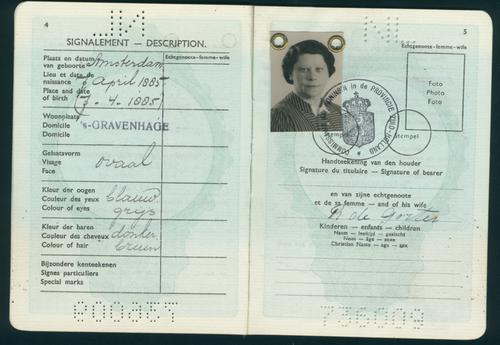 4
SIGNALEMENT — DESCRIPTION.
Echtgenoote-femme-wife
Plaats en datum van geboorte Amsterdam
Lieu et date de naissance 3 April 1885
Place and date of birth (3-4-1885)
Woonplaats
Domicile 's-GRAVENHAGE
Domicile
Gelaatsvorm
Visage ovaal
Face
Kleur der oogen blauw
Couleur des yeux grijs
Colour of eyes
Kleur der haren donker
Couleur des cheveux bruin
Colour of hair
Bijzondere kenteekenen
Signes particuliers
Special marks
5
Echtgenoote-femme-wife
Foto
Photo
Foto
in de PROVINCIE ZUID-HOLLAND
Stempel
Stempel
Handteekening van den houder
Signature du titulaire — Signature of bearer
en van zijne echtgenoote
et de sa femme — and of his wife
de Gorter
Kinderen — enfants — children
Naam — leeftijd — geslacht
Nom — âge — sexe
Christian Name — age — sex
736009